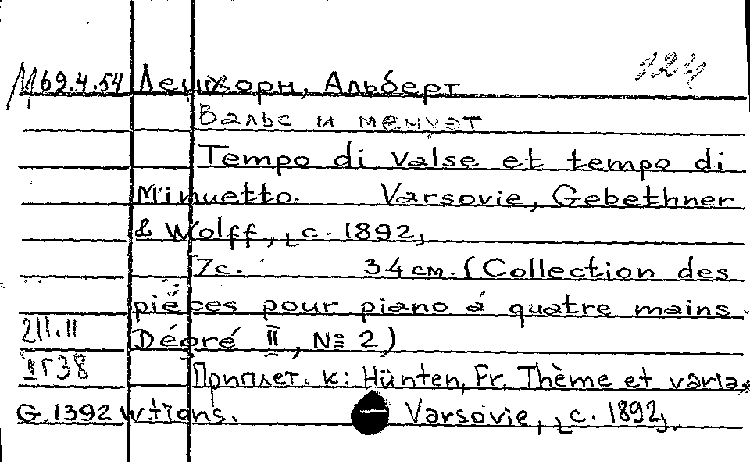 М69.4.54 Лешгорн, Альберт 124
Вальс и менуэт
Tempo di valse et tempo di
Minuetto. Varsovie, Gebethner
& Wolff, [c. 1892]
7с. 34 см. (Collection des
pièces pour piano à quatre mains.
211.11 Degré II, № 2)
IIГ38 Приплет. к: Hünten, Fr. Thème et varia-
G.1392 W tions. Varsovie, [c. 1892].